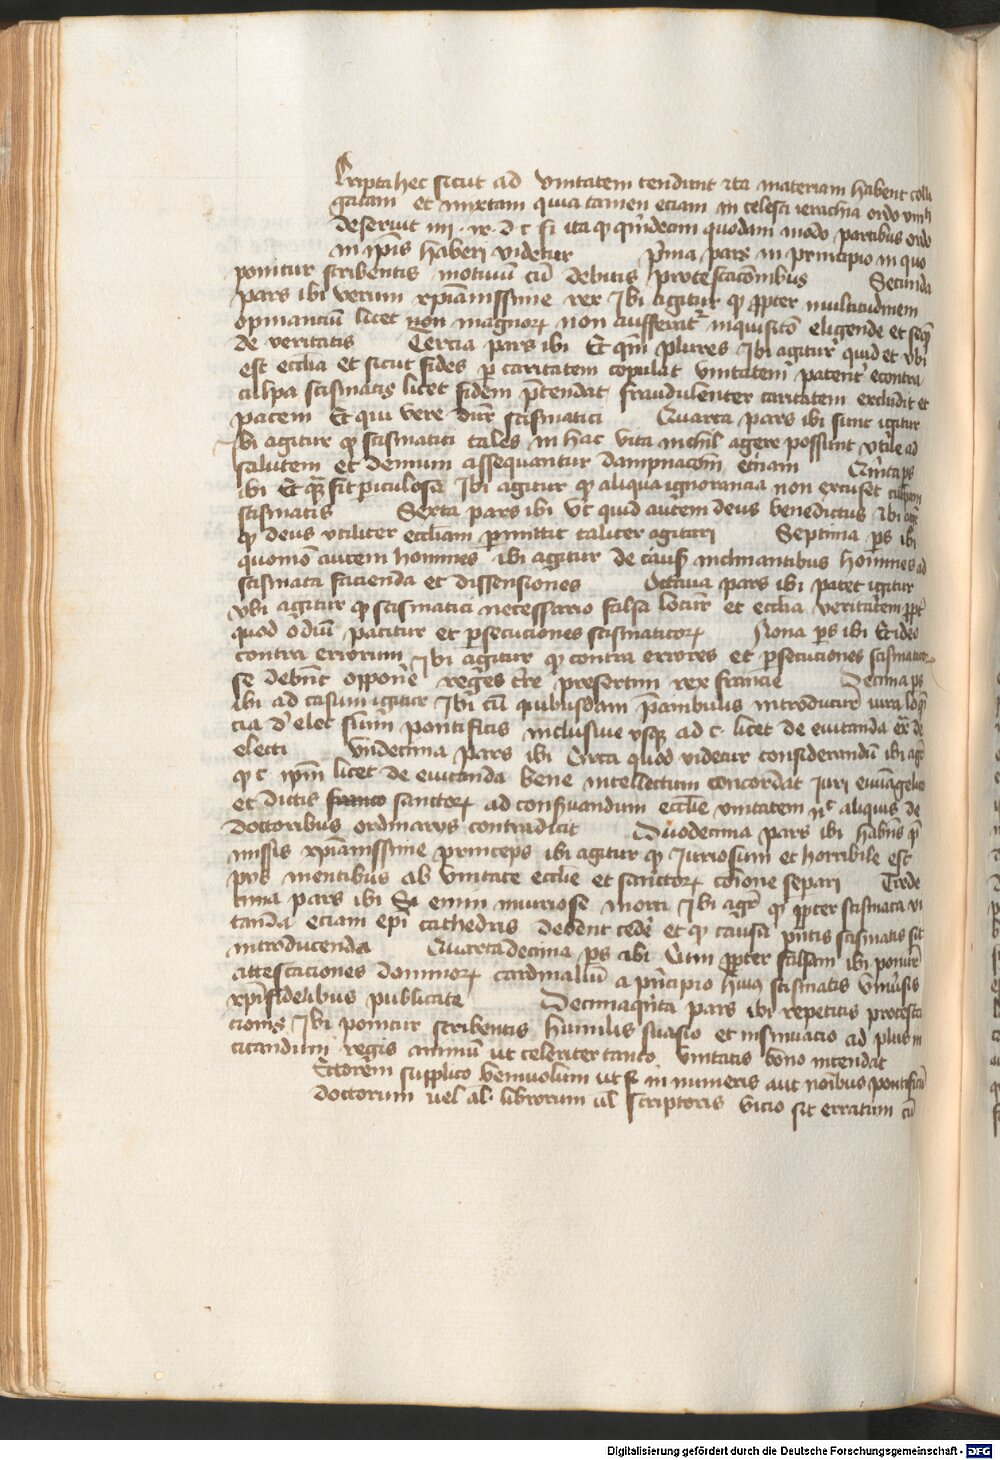 Scripta hec sicut ad vnitatem tendunt ita materiam habent colli
gatam et mixtam quia tamen eciam in celesti ierachia ordo
deseruit iiii · di · c · si ita qꝫ qͥndecim quodam modo partibus ordo
in ip̄is haberi videtur Pͥma pars in principio in quo
ponitur scribentis motiuū cū debitis protestac̄onibus Secunda
pars ibi verum xp̄ianissime rex Ibi agitur qꝫ ꝓpter multitudinem
opinanciū licet non magnorꝫ non aufferatᷣ inquisic̄o eligende et seqͣ
de veritatis Tercia pars ibi Et qm̄ plures Ibi agitur quid et vbi
est ecclīa et sicut fides ꝑ caritatem copulat vnitatem patent econtra
culpa scismatis licet fidem p̄tendat fraudulenter caritatem excludit et
pacem Et qui vere dicr̄ scismatici Quarta pars ibi sunt igitur
Ibi agitur qꝫ scismatici tales in hac vita nichil agere possunt vtile ad
salutem et demum assequantur dampnac̄oem et̄nam Qͥnta ps
ibi Et qꝫ sit ꝑiculosa Ibi agitur qꝫ aliqua ignorancia non excuset culpam
scismatis Sexta pars ibi Vt quid autem deus benedictus Ibi agr̄
qꝫ deus vtiliter eccliam ꝑmittit taliter agitari Septima ps ibi
quomo autem homines ibi agitur de caus̄ inclinantibus homines ad
scismata facienda et dissensiones Octaua pars ibi patet igitur
vbi agitur qꝫ scismatici necessario falsa locūtr et ecclia veritatem ꝓpt̄
quod odiū patitur et ꝑsecuciones scismaticorꝫ Nona ps ibi Et ideo
contra errorum Ibi agitur qꝫ contra errores et ꝑsecuciones scismaticorꝫ
se debent oppon̄e reges t̄re presertim rex francie Decima ps
ibi ad casum igitur Ibi cū quibusdam p̄ambulis introducūtr iura loqͣ
cia d̄ elec sūmi pontificis inclusiue vsqꝫ ad c· licet de euitanda exͣ de
electi Vndecima pars ibi Circa quod videtur considerandū ibi agr̄
qꝫ c· ip̄m licet de euitanda bene intellectum concordat iuri ewāgelico
et dictis franco sanctorꝫ ad conseruandum ecclīe vnitatem nͨ aliquis de
doctoribus ordinarys contradicit Duodecima pars ibi habitꝭ p̄
missis xp̄ianissime princeps ibi agitur qꝫ iuriosum et horribile est
pijs mentibus ab vnitate ecclie et sanctorꝫ coīone separi Trede
cima pars ibi Si enim iniuriose morti Ibi agr̄ qꝫ ꝓpter scismata vi
tanda eciam epī cathedris debent cedē et qꝫ causa pn̄tis scismatis sit
introducenda Quartadecima ps ibi Cum ꝓpter falsam ibi ponitr̄
attestaciones dominorꝫ cardinaliū a pͥncipio huiꝰ scismatis vniūsis
xp̄ifidelibus publicate Decimaqͥnta pars ibi repetitis protesta
cionis Ibi ponitur scribentis humilis suasio et insinuacio ad plus in
citandum regis animū ut celeriter tanto vnitatis bono intendat
Lectorem supplico beniuolum ut si in numeris aut noībus pontificū
doctorum uel al· librorum ul scriptoris vicio sit erratum cū
Digitalisierung gefördert durch die Deutsche Forschungsgemeinschaft - DFG